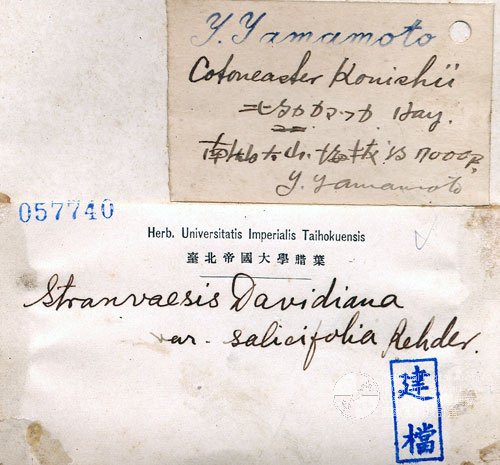 Y. Yamamoto
Cotoneaster Konishii
Hay.
7000
Y. Yamamoto
057740
Herb. Universitatis Imperialis Taihokuensis
臺北帝國大學腊葉
Stranvaesis Davidiana
var. salicifolia Rehder.
建檔